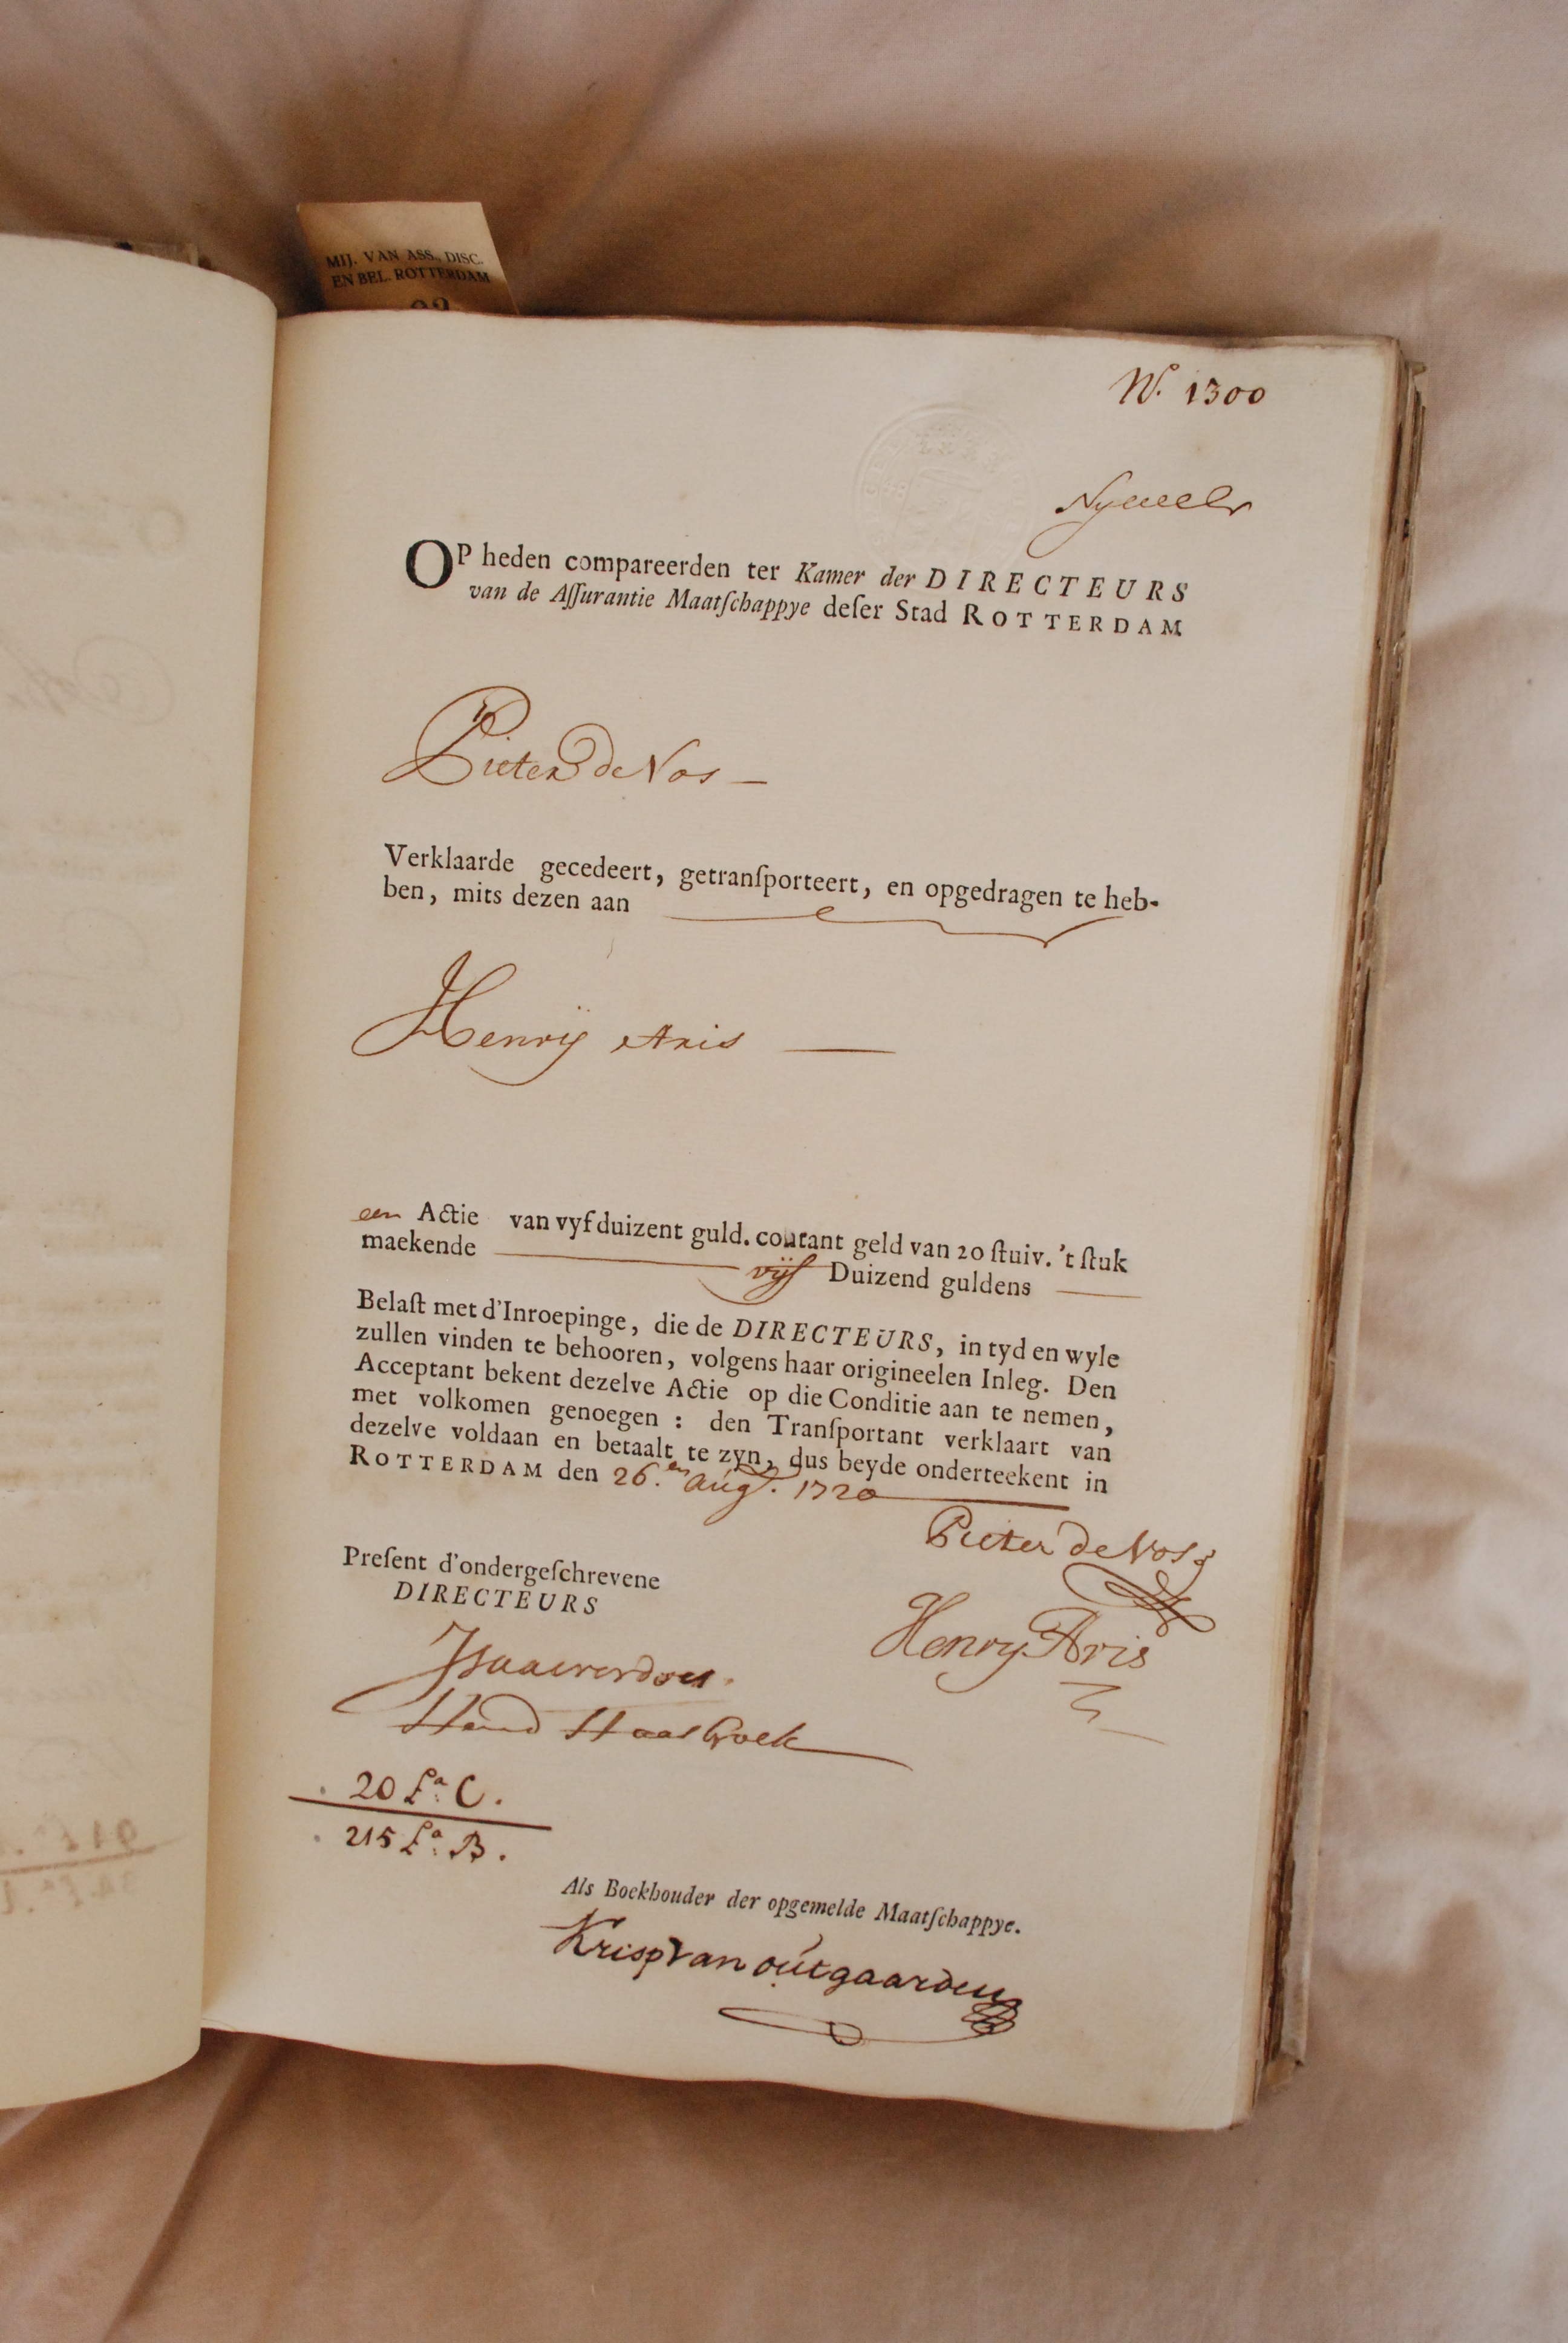 MIJ. VAN ASS., DISC.
EN BEL. ROTTERDAM
N.o 1300
OP heden compareerden ter Kamer der DIRECTEURS
van de Aſſurantie Maatſchappye deſer Stad ROTTERDAM
Pieter de Vos —
Verklaarde gecedeert, getranſporteert, en opgedragen te heb-
ben, mits dezen aan
Henrÿ Aris —
een Actie van vyf duizent guld. courant geld van 20 ſtuiv. 't ſtuk
maekende vÿf Duizend guldens
Belaſt met d'Inroepinge, die de DIRECTEURS, in tyd en wyle
zullen vinden te behooren, volgens haar origineelen Inleg. Den
Acceptant bekent dezelve Actie op die Conditie aan te nemen,
met volkomen genoegen: den Tranſportant verklaart van
dezelve voldaan en betaalt te zyn, dus beyde onderteekent in
ROTTERDAM den 26.en Aug. 1720
Pieter de Vos
Preſent d'ondergeſchrevene
DIRECTEURS
Henry Aris
Hend Haasbroek
20 L.a C.
215 L.a B.
Als Boekhouder der opgemelde Maatſchappye.
Krisp van outgaarden